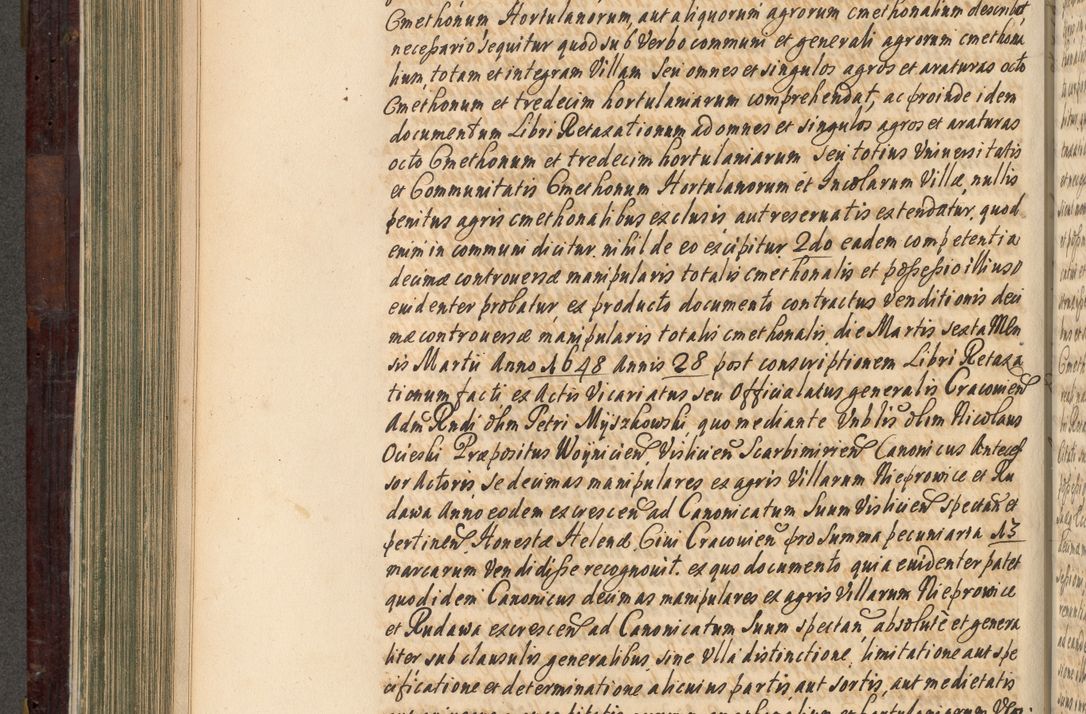 Cmethonum Hortulanorum, aut aliquorum agrorum cmethonalium describit
necessario sequitur quod sub Verbo communi et generali agrorum cmethona
lium, totam et integram Villam seu omnes et singulos agros et araturas octo
Cmethonum et tredecim hortulaniarum comprehendat, ac proinde idem
documentum Libri Retaxationum ad omnes et singulos agros et araturas
octo Cmethonum et tredecim hortulaniarum seu totius Vniversitatis
et Communitatis Cmethonum Hortulanorum et Incolarum Villæ, nullis
penitus agris cmethonalibus exclusis aut reservatis extendatur, quod
enim in communi dicitur, nihil de eo excipitur 2do eadem competentia
decimæ controversæ manipularis totalis cmethonalis et possessio illius
evidenter probatur ex producto documento contractus Venditionis deci
mæ controversæ manipularis totalis cmethonalis die Martis sexta Men
sis Martii Anno 1648 Annis 28 post conscriptionem Libri Retaxa
tionum facti ex Actis Vicariatus seu Officialatus generalis Cracovien
Adm Rndi olim Petri Myszkowski quo mediante Vnblis olim Nicolaus
Ocieski Præpositus Woynicien, Vislicien Scarbimirien Canonicus Anteces
sor Actoris, se decimas manipulares ex agris Villarum Nieprowice et Ru
dawa Anno eodem excrescen ad Canonicatum suum Vislicien spectan et
pertinen Honestæ Helenæ Civi Cracovien pro summa pecuniaria 13
marcarum Vendidisse recognovit. ex quo documento quia evidenter patet
quod idem Canonicus decimas manipulares ex agris Villarum Nieprowice
et Rudawa excrescen ad Canonicatum suum spectan absolutè et genera
liter sub clausulis generalibus, sine Vlla distinctione, limitatione aut spe
cificatione et determinatione alicuius partis aut sortis, aut medietatis